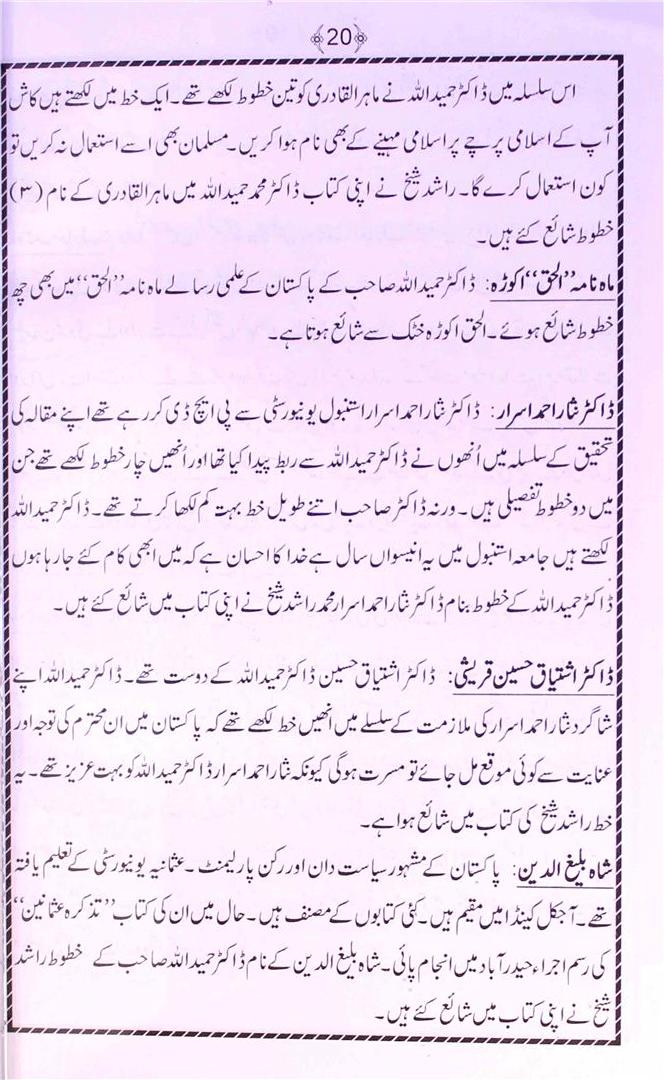 20
اس سلسلہ میں ڈاکٹر حمید اللہ نے ماہر القادری کو تین خطوط لکھے تھے۔ ایک خط میں لکھتے ہیں کاش
آپ کے اسلامی پرچے پر اسلامی مہینے کے بھی نام ہوا کریں۔ مسلمان بھی اسے استعمال نہ کریں تو
کون استعمال کرے گا۔ راشد شیخ نے اپنی کتاب ڈاکٹر محمد حمید اللہ میں ماہر القادری کے نام (۳)
خطوط شائع کئے ہیں۔
ماہ نامہ ”الحق“ اکوڑہ: ڈاکٹر حمید اللہ صاحب کے پاکستان کے علمی رسالے ماہ نامہ ”الحق“ میں بھی چھ
خطوط شائع ہوئے۔ الحق اکوڑہ خٹک سے شائع ہوتا ہے۔
ڈاکٹر نثار احمد اسرار: ڈاکٹر نثار احمد اسرار استنبول یونیورسٹی سے پی ایچ ڈی کر رہے تھے اپنے مقالہ کی
تحقیق کے سلسلہ میں اُنھوں نے ڈاکٹر حمید اللہ سے ربط پیدا کیا تھا اور اُنھیں چار خطوط لکھے تھے جن
میں دو خطوط تفصیلی ہیں۔ ورنہ ڈاکٹر صاحب اتنے طویل خط بہت کم لکھا کرتے تھے۔ ڈاکٹر حمید اللہ
لکھتے ہیں جامعہ استنبول میں یہ انیسواں سال ہے خدا کا احسان ہے کہ میں ابھی کام کئے جا رہا ہوں
ڈاکٹر حمید اللہ کے خطوط بنام ڈاکٹر نثار احمد اسرار محمد راشد شیخ نے اپنی کتاب میں شائع کئے ہیں۔
ڈاکٹر اشتیاق حسین قریشی: ڈاکٹر اشتیاق حسین ڈاکٹر حمید اللہ کے دوست تھے۔ ڈاکٹر حمید اللہ اپنے
شاگرد نثار احمد اسرار کی ملازمت کے سلسلے میں انھیں خط لکھے تھے کہ پاکستان میں ان محترم کی توجہ اور
عنایت سے کوئی موقع مل جائے تو مسرت ہوگی کیونکہ نثار احمد اسرار ڈاکٹر حمید اللہ کو بہت عزیز تھے۔ یہ
خط راشد شیخ کی کتاب میں شائع ہوا ہے۔
شاہ بلیغ الدین: پاکستان کے مشہور سیاست دان اور رکن پارلیمنٹ۔ عثمانیہ یونیورسٹی کے تعلیم یافتہ
تھے۔ آجکل کینڈا میں مقیم ہیں۔ کئی کتابوں کے مصنف ہیں۔ حال میں ان کی کتاب ”تذکرہ عثمانین“
کی رسم اجراء حیدرآباد میں انجام پائی۔ شاہ بلیغ الدین کے نام ڈاکٹر حمید اللہ صاحب کے خطوط راشد
شیخ نے اپنی کتاب میں شائع کئے ہیں۔